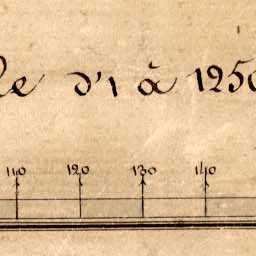 d'1 à 1250
110 120 130 140